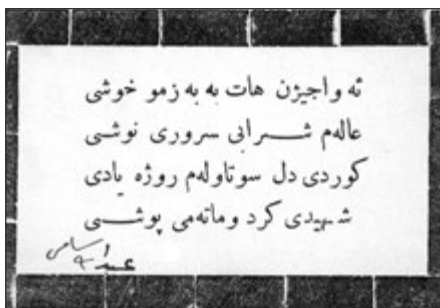 ئه واجیژن هات به به زمو خوشی
عالهم شـــرابی سروری نوشـی
کوردی دل سوتاولهم روژه یادی
شهیدی کرد وماتهمی پوشـــی